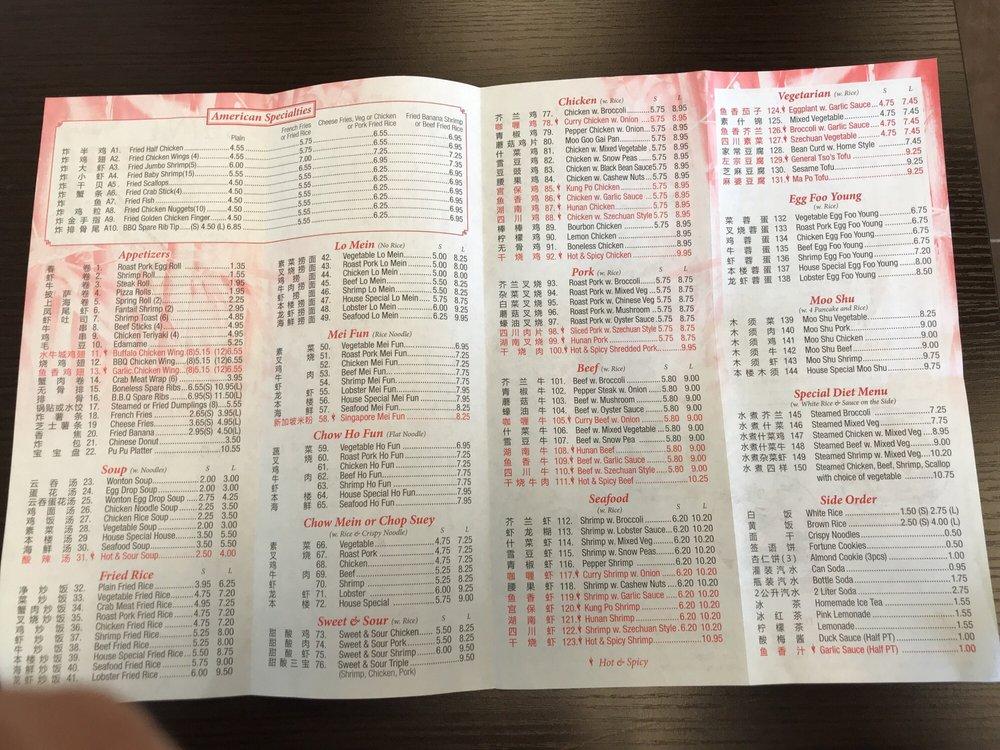 American Specialties
Plain
French Fries or Fried Rice
Cheese Fries, Veg or Chicken or Pork Fried Rice
Fried Banana, Shrimp or Beef Fried Rice
炸半鸡 A1. Fried Half Chicken 4.55 5.75 6.55 6.95
炸鸡翅 A2. Fried Chicken Wings (4) 4.55
炸大虾 A3. Fried Jumbo Shrimp(5) 6.00
炸小虾 A4. Fried Baby Shrimp(15) 5.55
炸干贝 A5. Fried Scallops 4.50
炸蟹条 A6. Fried Crab Stick(4) 4.50
炸鱼 A7. Fried Fish 4.50
炸鸡粒 A8. Fried Chicken Nuggets(10) 4.50
炸金手指 A9. Fried Golden Chicken Finger 4.50
炸排骨尾 A10. BBQ Spare Rib Tip (S) 4.50 (L) 6.85
Appetizers
春卷 1. Roast Pork Egg Roll 1.35
虾卷 2. Shrimp Roll 1.55
牛卷 3. Steak Roll 1.95
披萨卷 4. Pizza Rolls 1.95
上海卷 5. Spring Roll (2) 2.25
凤尾虾 6. Fantail Shrimp (2) 2.95
虾吐司 7. Shrimp Toast (6) 4.85
牛串 8. Beef Sticks (4) 4.95
鸡串 9. Chicken Teriyaki (4) 4.95
毛豆 10. Edamame 5.55
水牛城鸡翅 11. Buffalo Chicken Wing (8)5.15 (12)6.55
烧鸡翅 12. BBQ Chicken Wing (8)5.15 (12)6.55
鱼香鸡翅 13. Garlic Chicken Wing (8)5.15 (12)6.55
蟹肉卷 14. Crab Meat Wrap (6) 3.95
无骨排 15. Boneless Spare Ribs 6.55(S) 10.95(L)
排骨 16. B.B.Q Spare Ribs 6.95(S) 11.50(L)
锅贴或水饺 17. Steamed or Fried Dumplings (8) 5.55
炸薯条 18. French Fries 2.65(S) 3.95(L)
芝士薯条 19. Cheese Fries 3.65(S) 4.95(L)
香焦 20. Fried Banana 2.95(S) 4.50(L)
炸包 21. Chinese Donut 3.50
宝宝盘 22. Pu Pu Platter 10.55
Soup (w. Noodles) S L
云吞汤 23. Wonton Soup 2.00 3.00
蛋花汤 24. Egg Drop Soup 2.00 3.00
云吞蛋花汤 25. Wonton Egg Drop Soup 2.75 4.25
鸡面汤 26. Chicken Noodle Soup 2.25 3.50
鸡饭汤 27. Chicken Rice Soup 2.25 3.50
素菜汤 28. Vegetable Soup 2.00 3.00
本楼汤 29. House Special House 3.50 5.50
海鲜汤 30. Seafood Soup 3.50 5.50
酸辣汤 31. Hot & Sour Soup 2.50 4.00
Fried Rice S L
净炒饭 32. Plain Fried Rice 3.95 6.25
菜炒饭 33. Vegetable Fried Rice 4.75 7.20
蟹肉炒饭 34. Crab Meat Fried Rice 4.95 7.25
叉烧炒饭 35. Roast Pork Fried Rice 4.75 7.20
鸡炒饭 36. Chicken Fried Rice 4.75 7.20
虾炒饭 37. Shrimp Fried Rice 5.25 8.00
牛炒饭 38. Beef Fried Rice 5.25 8.00
本楼炒饭 39. House Special Fried Rice 5.50 8.50
海鲜炒饭 40. Seafood Fried Rice 5.75 9.00
龙虾炒饭 41. Lobster Fried Rice 6.00 9.50
Lo Mein (No Rice) S L
素菜捞面 42. Vegetable Lo Mein 5.00 8.25
叉烧捞面 43. Roast Pork Lo Mein 5.00 8.00
鸡捞面 44. Chicken Lo Mein 5.00 8.00
牛捞面 45. Beef Lo Mein 5.50 8.50
虾捞面 46. Shrimp Lo Mein 5.50 8.50
本楼捞面 47. House Special Lo Mein 5.75 8.75
龙虾捞面 48. Lobster Lo Mein 6.00 9.00
海鲜捞面 49. Seafood Lo Mein 6.25 9.95
Mei Fun (Rice Noodle)
素菜 50. Vegetable Mei Fun 7.25
叉烧 51. Roast Pork Mei Fun 7.25
鸡 52. Chicken Mei Fun 7.25
牛肉 53. Beef Mei Fun 8.25
虾 54. Shrimp Mei Fun 8.25
龙虾 55. Lobster Mei Fun 8.25
本楼 56. House Special Mei Fun 8.25
海鲜 57. Seafood Mei Fun 8.25
新加坡米粉 58. Singapore Mei Fun 8.25
Chow Ho Fun (Flat Noodle)
蔬菜 59. Vegetable Ho Fun 6.95
叉烧 60. Roast Pork Ho Fun 7.25
鸡 61. Chicken Ho Fun 7.25
牛肉 62. Beef Ho Fun 7.95
虾 63. Shrimp Ho Fun 7.95
本楼 64. House Special Ho Fun 7.95
海鲜 65. Seafood Ho Fun 7.95
Chow Mein or Chop Suey
(w. Rice & Crispy Noodle) S L
素菜 66. Vegetable 4.75 7.25
叉烧 67. Roast Pork 4.75 7.25
鸡 68. Chicken 4.75 7.25
牛肉 69. Beef 5.25 8.25
虾 70. Shrimp 5.25 8.25
龙虾 71. Lobster 6.00 9.25
本楼 72. House Special 5.75 9.00
Sweet & Sour (w. Rice) S L
甜酸鸡 73. Sweet & Sour Chicken 5.50 8.25
甜酸肉 74. Sweet & Sour Pork 5.50 8.25
甜酸虾 75. Sweet & Sour Shrimp 6.00 9.50
甜酸三宝 76. Sweet & Sour Triple 9.50
(Shrimp, Chicken, Pork)
Chicken (w. Rice) S L
芥兰鸡 77. Chicken w. Broccoli 5.75 8.95
咖喱鸡 78. Curry Chicken w. Onion 5.75 8.95
青椒鸡 79. Pepper Chicken w. Onion 5.75 8.95
蘑菇鸡片 80. Moo Goo Gai Pan 5.75 8.95
什菜鸡 81. Chicken w. Mixed Vegetable 5.75 8.95
雪豆鸡 82. Chicken w. Snow Peas 5.75 8.95
豆豉鸡 83. Chicken w. Black Bean Sauce 5.75 8.95
腰果鸡 84. Chicken w. Cashew Nuts 5.75 8.95
宫保鸡 85. Kung Po Chicken 5.75 8.95
鱼香鸡 86. Chicken w. Garlic Sauce 5.75 8.95
湖南鸡 87. Hunan Chicken 5.75 8.95
四川鸡 88. Chicken w. Szechuan Style 5.75 8.95
棒棒鸡 89. Bourbon Chicken 5.75 8.95
柠檬鸡 90. Lemon Chicken 8.95
无骨鸡 91. Boneless Chicken 8.95
干烧鸡 92. Hot & Spicy Chicken 8.95
Pork (w. Rice) S L
芥兰叉烧 93. Roast Pork w. Broccoli 5.75 8.75
杂菜叉烧 94. Roast Pork w. Mixed Veg 5.75 8.75
白菜叉烧 95. Roast Pork w. Chinese Veg 5.75 8.75
蘑菇叉烧 96. Roast Pork w. Mushroom 5.75 8.75
蠔油叉烧 97. Roast Pork w. Oyster Sauce 5.75 8.75
四川肉片 98. Sliced Pork w. Szechuan Style 5.75 8.75
湖南叉烧 99. Hunan Pork 5.75 8.75
干烧肉 100. Hot & Spicy Shredded Pork 9.95
Beef (w. Rice) S L
芥兰牛 101. Beef w. Broccoli 5.80 9.00
青椒牛 102. Pepper Steak w. Onion 5.80 9.00
蘑菇牛 103. Beef w. Mushroom 5.80 9.00
蠔油牛 104. Beef w. Oyster Sauce 5.80 9.00
咖喱牛 105. Curry Beef w. Onion 5.80 9.00
什菜牛 106. Beef w. Mixed Vegetable 5.80 9.00
雪豆牛 107. Beef w. Snow Pea 5.80 9.00
湖南牛 108. Hunan Beef 5.80 9.00
鱼香牛 109. Beef w. Garlic Sauce 5.80 9.00
四川牛 110. Beef w. Szechuan Style 5.80 9.00
干烧牛肉 111. Hot & Spicy Beef 10.25
Seafood (w. Rice) S L
芥兰虾 112. Shrimp w. Broccoli 6.20 10.20
虾龙糊 113. Shrimp w. Lobster Sauce 6.20 10.20
什菜虾 114. Shrimp w. Mixed Veg 6.20 10.20
雪豆虾 115. Shrimp w. Snow Peas 6.20 10.20
青椒虾 116. Pepper Shrimp 6.20 10.20
咖喱虾 117. Curry Shrimp w. Onion 6.20 10.20
腰果虾 118. Shrimp w. Cashew Nuts 6.20 10.20
鱼香虾 119. Shrimp w. Garlic Sauce 6.20 10.20
宫保虾 120. Kung Po Shrimp 6.20 10.20
湖南虾 121. Hunan Shrimp 6.20 10.20
四川虾 122. Shrimp w. Szechuan Style 6.20 10.20
干烧虾 123. Hot & Spicy Shrimp 10.95
Hot & Spicy
Vegetarian (w. Rice) S L
鱼香茄子 124. Eggplant w. Garlic Sauce 4.75 7.45
素什锦 125. Mixed Vegetable 4.75 7.45
鱼香芥兰 126. Broccoli w. Garlic Sauce 4.75 7.45
四川素菜 127. Szechuan Vegetable 4.75 7.45
家常豆腐 128. Bean Curd w. Home Style 7.45
左宗豆腐 129. General Tso's Tofu 9.25
芝麻豆腐 130. Sesame Tofu 9.25
麻婆豆腐 131. Ma Po Tofu 9.25
Egg Foo Young
(w. Rice)
菜蓉蛋 132 Vegetable Egg Foo Young 6.75
叉烧蓉蛋 133 Roast Pork Egg Foo Young 6.75
鸡蓉蛋 134 Chicken Egg Foo Young 6.75
牛蓉蛋 135 Beef Egg Foo Young 7.20
虾蓉蛋 136 Shrimp Egg Foo Young 7.20
本楼蓉蛋 137 House Special Egg Foo Young 8.00
龙虾蓉蛋 138 Lobster Egg Foo Young 8.50
Moo Shu
(w. 4 Pancake and Rice)
木须菜 139 Moo Shu Vegetable 8.25
木须肉 140 Moo Shu Pork 9.00
木须鸡 141 Moo Shu Chicken 9.00
木须牛 142 Moo Shu Beef 9.00
木须虾 143 Moo Shu Shrimp 9.75
本楼木须 144 House Special Moo Shu 9.75
Special Diet Menu
(w. White Rice & Sauce on the Side)
水煮芥兰 145 Steamed Broccoli 7.25
水煮什菜 146 Steamed Mixed Veg 7.25
水煮什菜鸡 147 Steamed Chicken w. Mixed Veg 8.95
水煮什菜牛 148 Steamed Beef w. Mixed Veg 9.00
水煮杂菜虾 149 Steamed Shrimp w. Mixed Veg 10.20
水煮四样 150 Steamed Chicken, Beef, Shrimp, Scallop
with choice of vegetable 10.75
Side Order
白饭 White Rice 1.50 (S) 2.75 (L)
黄饭 Brown Rice 2.50 (S) 4.00 (L)
面干 Crispy Noodles 0.50
签语饼 Fortune Cookies 0.50
杏仁饼(3) Almond Cookie (3pcs) 1.00
灌装汽水 Can Soda 0.95
瓶装汽水 Bottle Soda 1.75
2公升汽水 2 Liter Soda 2.75
冰茶 Homemade Ice Tea 1.55
冰红茶 Pink Lemonade 1.55
柠檬茶 Lemonade 1.55
酸梅酱 Duck Sauce (Half PT) 1.00
鱼香汁 Garlic Sauce (Half PT) 1.00